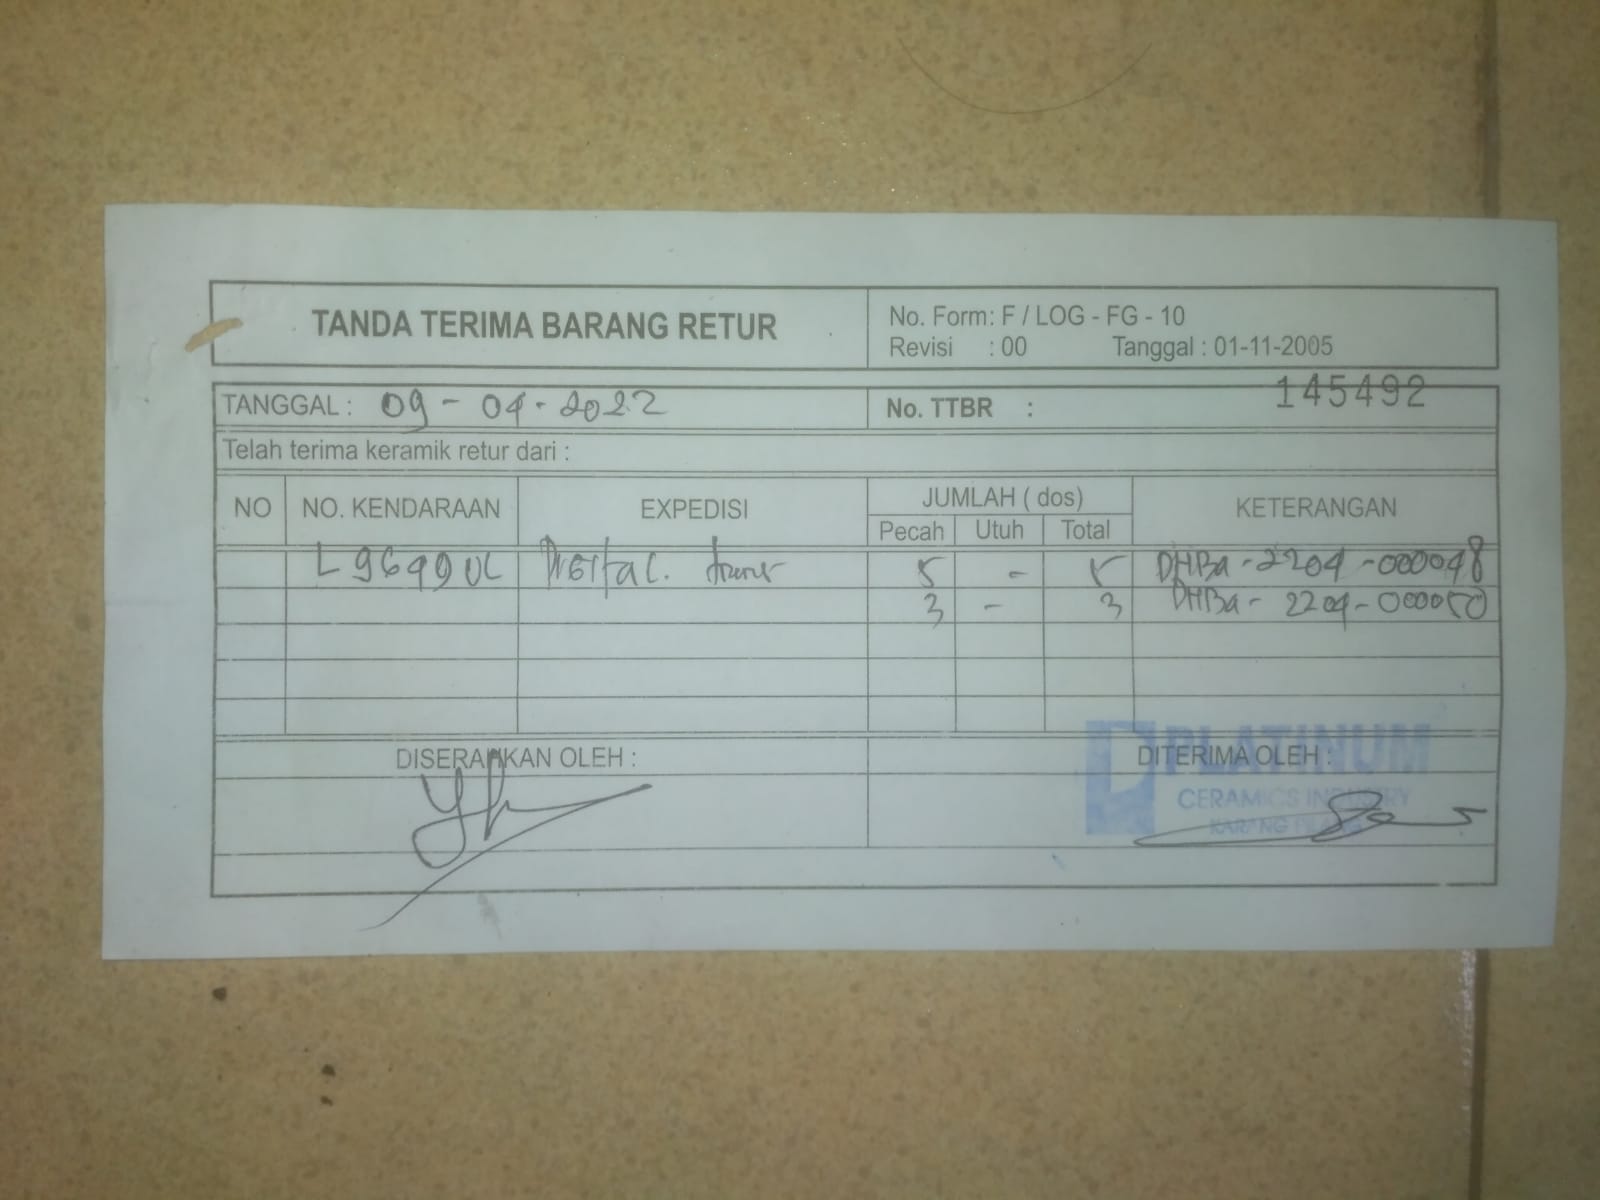 TANDA TERIMA BARANG RETUR
No. Form: F / LOG - FG - 10
Revisi : 00 Tanggal : 01-11-2005
TANGGAL : 09 - 04 - 2022
No. TTBR : 145492
Telah terima keramik retur dari :
NO NO. KENDARAAN EXPEDISI JUMLAH ( dos) KETERANGAN
Pecah Utuh Total
L 9699 UL 5 - 5 DHBa - 2204 - 000048
3 - 3 DHBa - 2204 - 000050
DISERAHKAN OLEH :
DITERIMA OLEH :
PLATINUM
CERAMICS INDUSTRY
KARANG PILANG